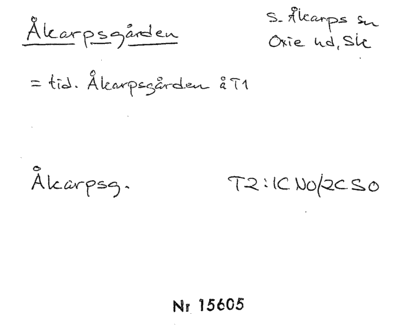 Åkarpsgården
S. Åkarps sn
Oxie hd, Sk
= tid. Åkarpsgården å T1
Åkarpsg.
T2:1C NO/2C SO
Nr 15605